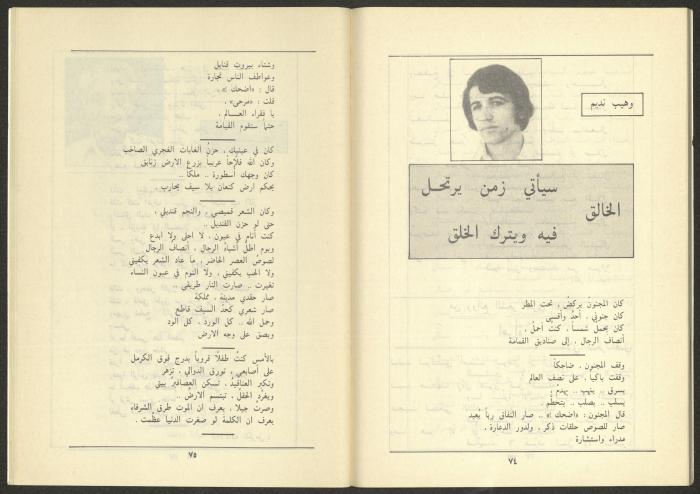 وهيب نديم
سيأتي زمن يرتحل
الخالق
فيه ويترك الخلق
كان المجنون يركض ، تحت المطر
كان جنوني ، أحدّ وأقسى
كان يحمل شمساً ، كنت أحملُ ،
أنصاف الرجال ، إلى صناديق القمامة
وقف المجنون ، ضاحكاً
وقفت باكياً ، على نصف العالم
يسرق .. ينهب .. يهدمُ ،
يسلب .. يصلب .. يتحطّم ،
قال المجنون : «اضحك» .. صار النفاق رباً يُعبد
صار للصوص حلقات ذكر ، ولدور الدعارة ،
مدراء واستشارة
٧٤
وشتاء بيروت قنابل
وعواطف الناس تجارة
قال : «اضحك» ،
قلت : «مرحى» ،
يا فقراء العـــالم ،
حتماً ستقوم القيامة
كان في عينيك ، حزنُ الغابات الفجري الصاخب
وكان الله فلاحاً عربياً يزرع الارض زنابق
كان وجهك أسطورة .. ملكاً ..
يحكم أرض كنعان بلا سيف يحارب
وكان الشعر قميصي ، والنجم قنديلي ،
حتى لو حزن القنديل ..
كنت أنام في عيون ، لا أحلى ولا أبدع
ويوم اطلّ أشباه الرجال ، أنصاف الرجال
لصوصُ العصر الحاضر ، ما عاد الشعر يكفيني
ولا الحب يكفيني ، ولا النوم في عيون النساء
تغيرت .. صارت النار طريقي ..
صار حقدي مدينة ، مملكة
صار شعري كحدّ السيف قاطع
وحمل الله .. كل الورد ، كل الود
وبصق على وجه الارض
بالأمس كنتُ طفلاً قروياً يدرج فوق الكرمل
على أصابعي ، تورق الدوالي ، تزهر
وتكبر العناقيدُ ، تسكن العصافير بيتي
ويغرد الحقل ، تبتسم الارض ..
وصرتُ جيلا ، يعرف ان الموت طرق الشرفاء
يعرف ان الكلمة لو صغرت الدنيا عظمت .
٧٥